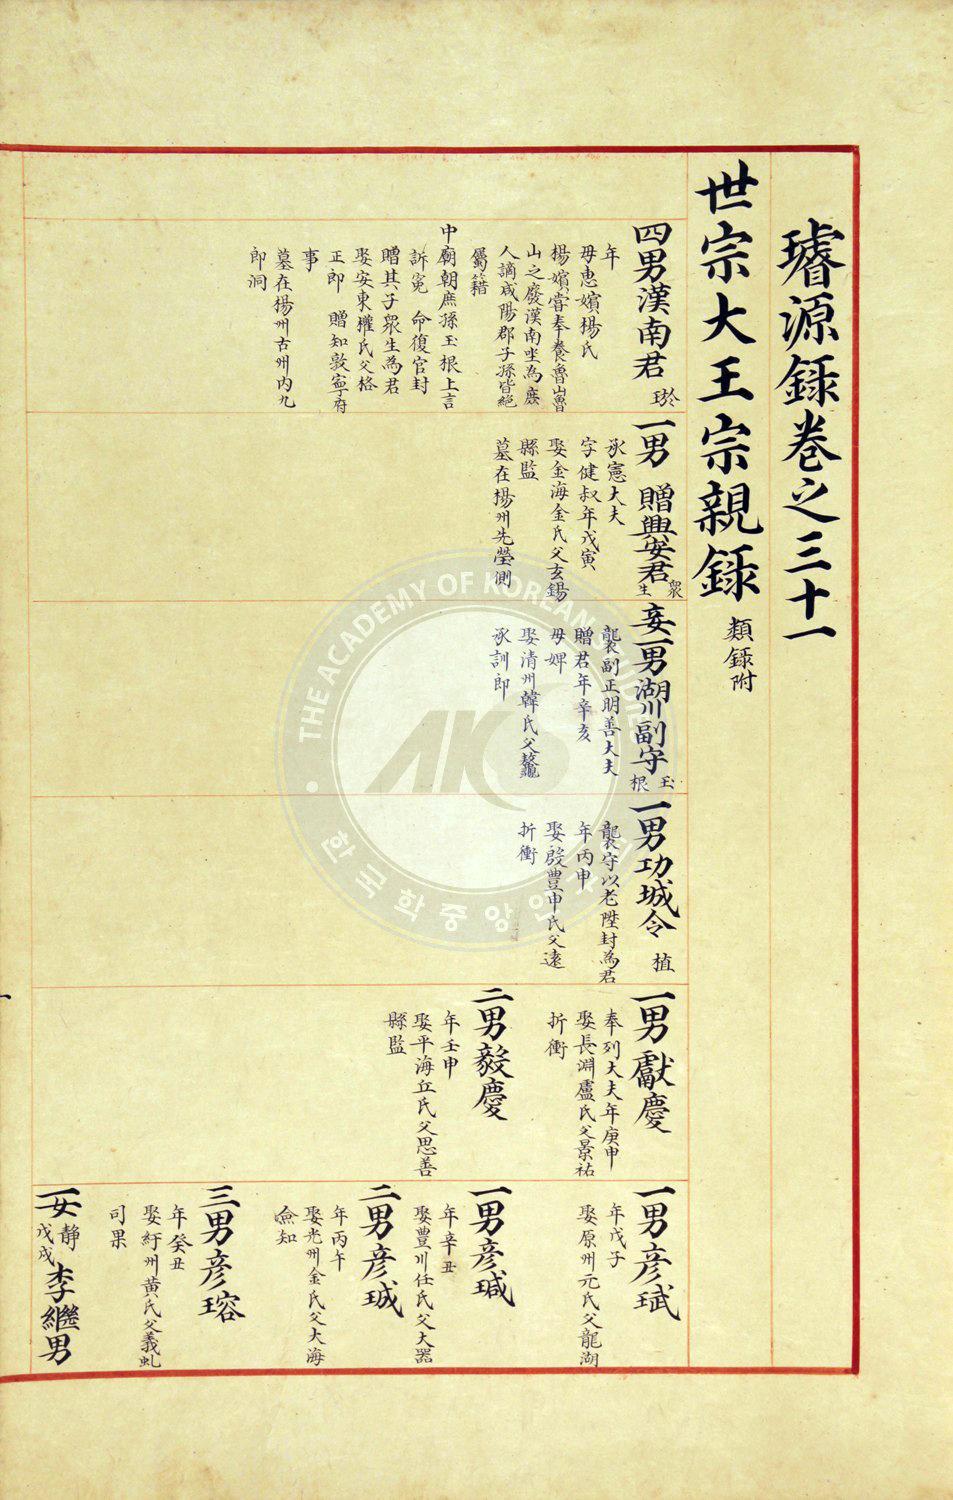 璿源錄卷之三十一
世宗大王宗親錄 類錄附
四男漢南君 𤥽
年
母惠嬪楊氏
楊嬪嘗奉養魯山魯
山之廢漢南坐為庶
人謫咸陽郡子孫皆絕
屬籍
中廟朝庶孫玉根上言
訴冤 命復官封
贈其子衆生為君
娶安東權氏父格
正郎 贈知敦寧府
事
墓在楊州古州內九
郎洞
一男 贈興安君 衆生
承憲大夫
字健叔年戊寅
娶金海金氏父玄錫
縣監
墓在楊州先塋側
妾一男湖川副守 玉根
襲副正明善大夫
贈君年辛亥
母婢
娶清州韓氏父鰲
承訓郎
一男功城令 植
襲守以老陞封為君
年丙申
娶殷豊申氏父遠
折衝
一男獻慶
奉列大夫年庚申
娶長淵盧氏父景祐
折衝
二男毅慶
年壬申
娶平海丘氏父思善
縣監
一男彦珷
年戊子
娶原州元氏父龍湖
一男彦瑊
年辛丑
娶豊川任氏父大器
二男彦珹
年丙午
娶光州金氏父大海
僉知
三男彦瑢
年癸丑
娶紆州黃氏父義虬
司果
一女靜 李繼男
戊戌
一
THE ACADEMY OF KOREAN STUDIES
AKS
한국학중앙연구원